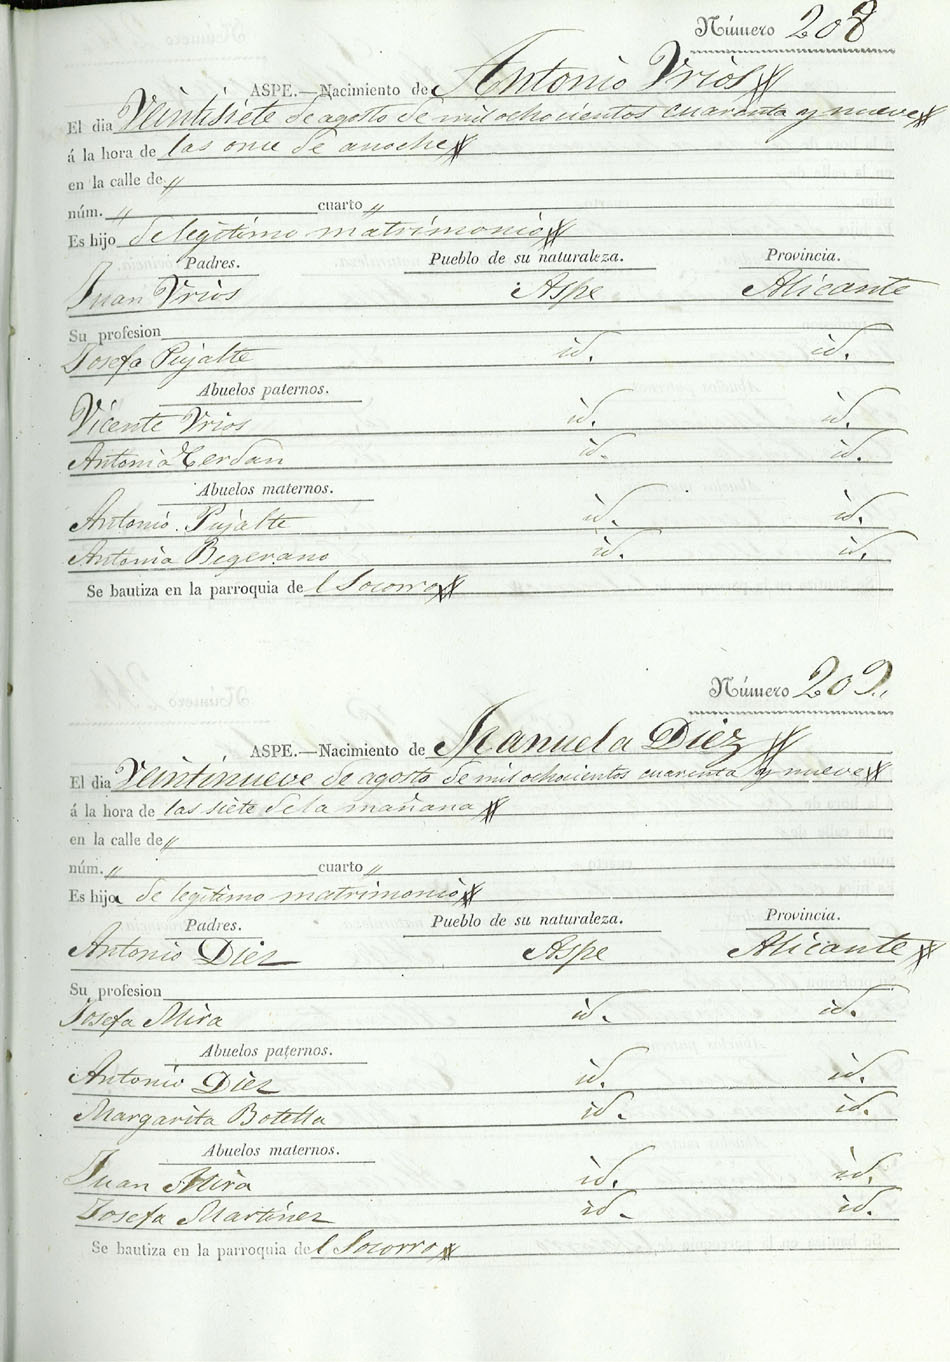 Número 208
ASPE.—Nacimiento de Antonio Vrios
El dia Veintisiete de agosto de mil ochocientos cuarenta y nueve
á la hora de las once de anoche
en la calle de "
núm. " cuarto "
Es hijo de legitimo matrimonio
Padres. Pueblo de su naturaleza. Provincia.
Juan Vrios Aspe Alicante
Su profesion
Josefa Pujalte id. id.
Abuelos paternos.
Vicente Vrios id. id.
Antonia Cerdan id. id.
Abuelos maternos.
Antonio Pujalte id. id.
Antonia Begerano id. id.
Se bautiza en la parroquia de l Socorro
Número 209.
ASPE.—Nacimiento de Manuela Diez
El dia Veintinueve de agosto de mil ochocientos cuarenta y nueve
á la hora de las siete de la mañana
en la calle de "
núm. " cuarto "
Es hija de legitimo matrimonio
Padres. Pueblo de su naturaleza. Provincia.
Antonio Diez Aspe Alicante
Su profesion
Josefa Mira id. id.
Abuelos paternos.
Antonio Diez id. id.
Margarita Botella id. id.
Abuelos maternos.
Juan Mira id. id.
Josefa Martinez id. id.
Se bautiza en la parroquia de l Socorro